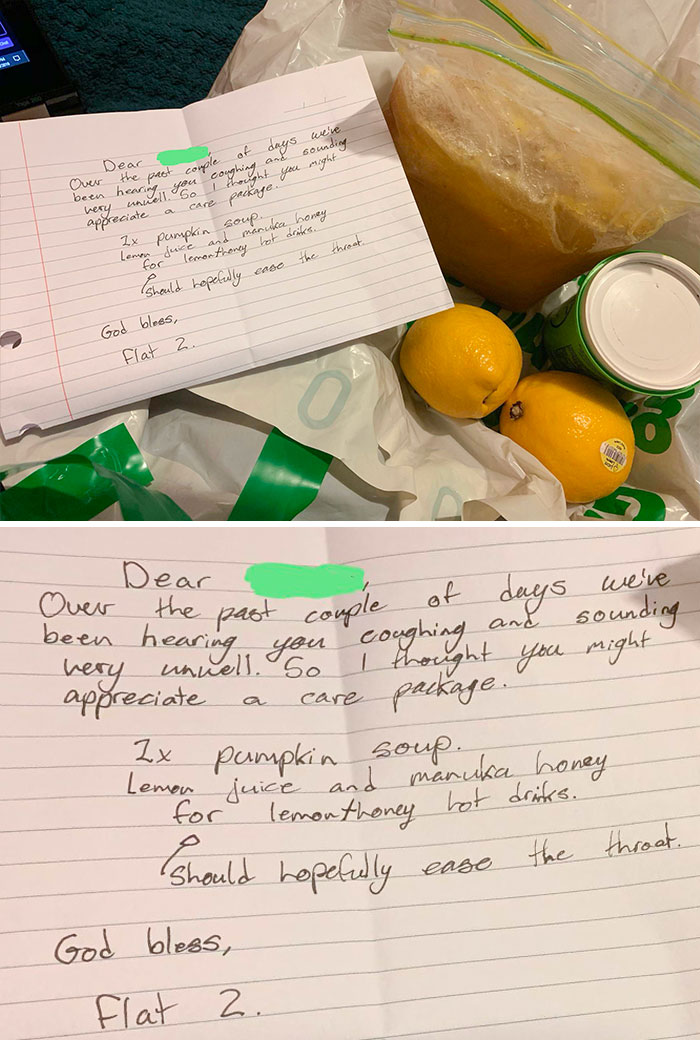 Dear ,
Over the past couple of days we've
been hearing you coughing and sounding
very unwell. So I thought you might
appreciate a care package.
1x pumpkin soup.
Lemon juice and manuka honey
for lemon+honey hot drinks.
should hopefully ease the throat.
God bless,
Flat 2.
Dear ,
Over the past couple of days we've
been hearing you coughing and sounding
very unwell. So I thought you might
appreciate a care package.
1x pumpkin soup.
Lemon juice and manuka honey
for lemon+honey hot drinks.
should hopefully ease the throat.
God bless,
Flat 2.